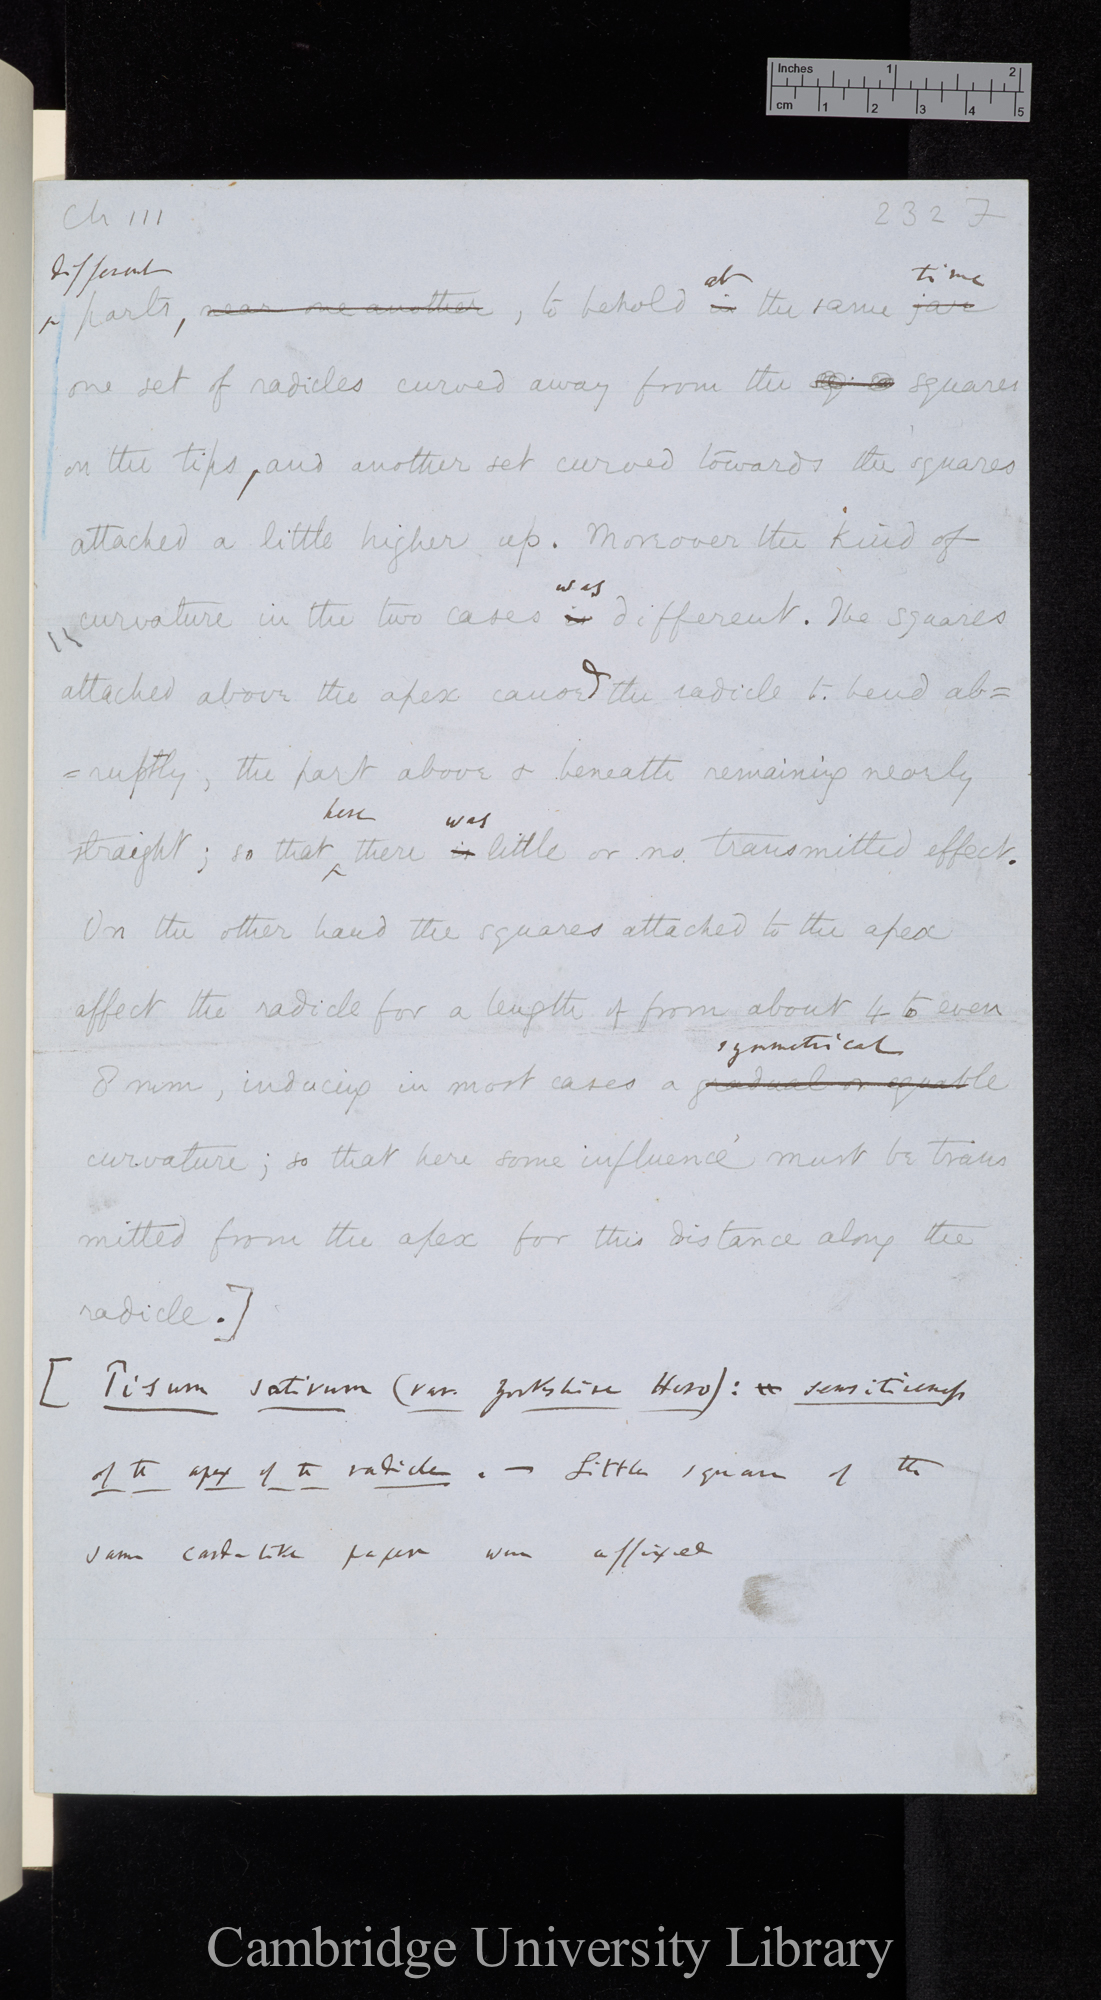 Inches 1 2
cm 1 2 3 4 5
Ch III 232 F
different at time
^ parts, near one another, to behold in the same jar
one set of radicles curved away from the squares
on the tips, and another set curved towards the squares
attached a little higher up. Moreover the kind of
was
curvature in the two cases is different. The squares
attached above the apex caused the radicle to bend ab=
=ruptly, the part above & beneath remaining nearly
here was
straight; so that ^ there is little or no transmitted effect.
On the other hand the squares attached to the apex
affect the radicle for a length of from about 4 to even
symmetrical
8 mm, inducing in most cases a gradual or equable
curvature; so that here some influence must be trans
mitted from the apex for this distance along the
radicle.]
[Pisum sativum (var. Yorkshire Hero): sensitiveness
of the apex of the radicle. — Little squares of the
same card-like paper were affixed
Cambridge University Library